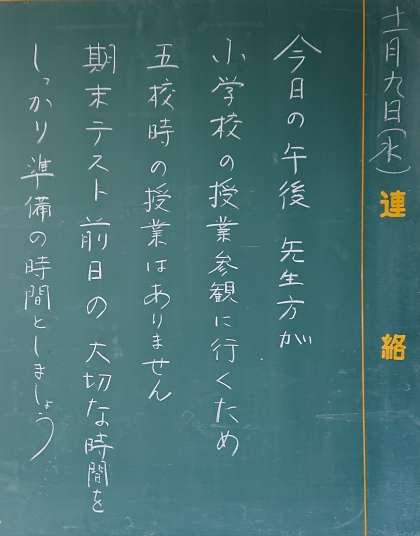 十一月九日(水)
連絡
今日の午後 先生方が
小学校の授業参観に行くため
五校時の授業はありません
期末テスト前日の大切な時間を
しっかり準備の時間としましょう